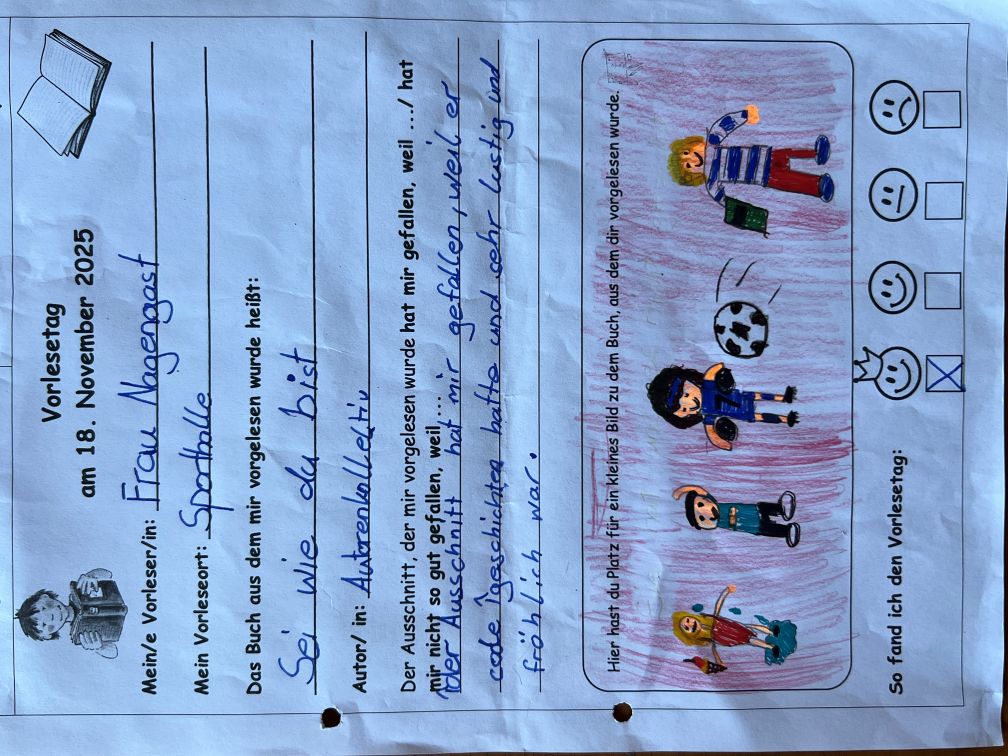 Vorlesetag
am 18. November 2025
Mein/e Vorleser/in: Frau Nagengast
Mein Vorleseort: Sporthalle
Das Buch aus dem mir vorgelesen wurde heißt:
Sei wie du bist
Autor/ in: Autorenkollektiv
Der Ausschnitt, der mir vorgelesen wurde hat mir gefallen, weil .../ hat
mir nicht so gut gefallen, weil....
Der Ausschnitt hat mir gefallen, weil er
coole geschichten hatte und sehr lustig und
fröhlich war.
Hier hast du Platz für ein kleines Bild zu dem Buch, aus dem dir vorgelesen wurde.
7
So fand ich den Vorlesetag: